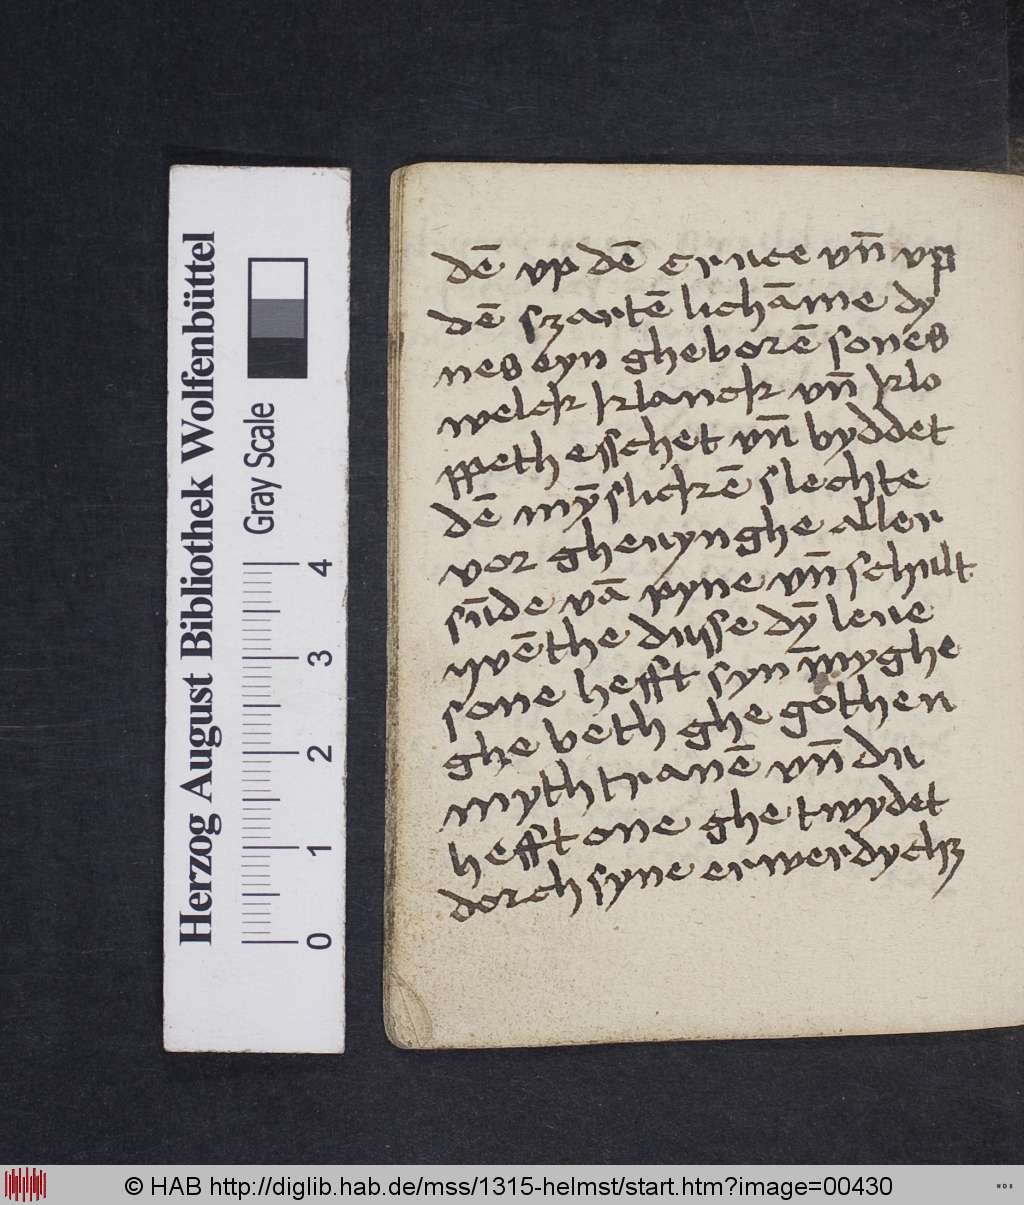 dē up dē cruce vn̄ vp
dē szartē lichāme dy
nes eyn gheborē sones
welck klanck vn̄ klo
ppeth esschet vn̄ byddet
dē mȳslickē slechte
vor gheuynghe aller
sūde vā pyne vn̄ schult
yvēthe dusse dȳ leue
sone hefft syn īnyghe
ghe beth ghe gothen
myth tranē vn̄ du
hefft one ghe twydet
dorch syne erwerdychz
Herzog August Bibliothek Wolfenbüttel
Gray Scale
0 1 2 3 4
© HAB http://diglib.hab.de/mss/1315-helmst/start.htm?image=00430